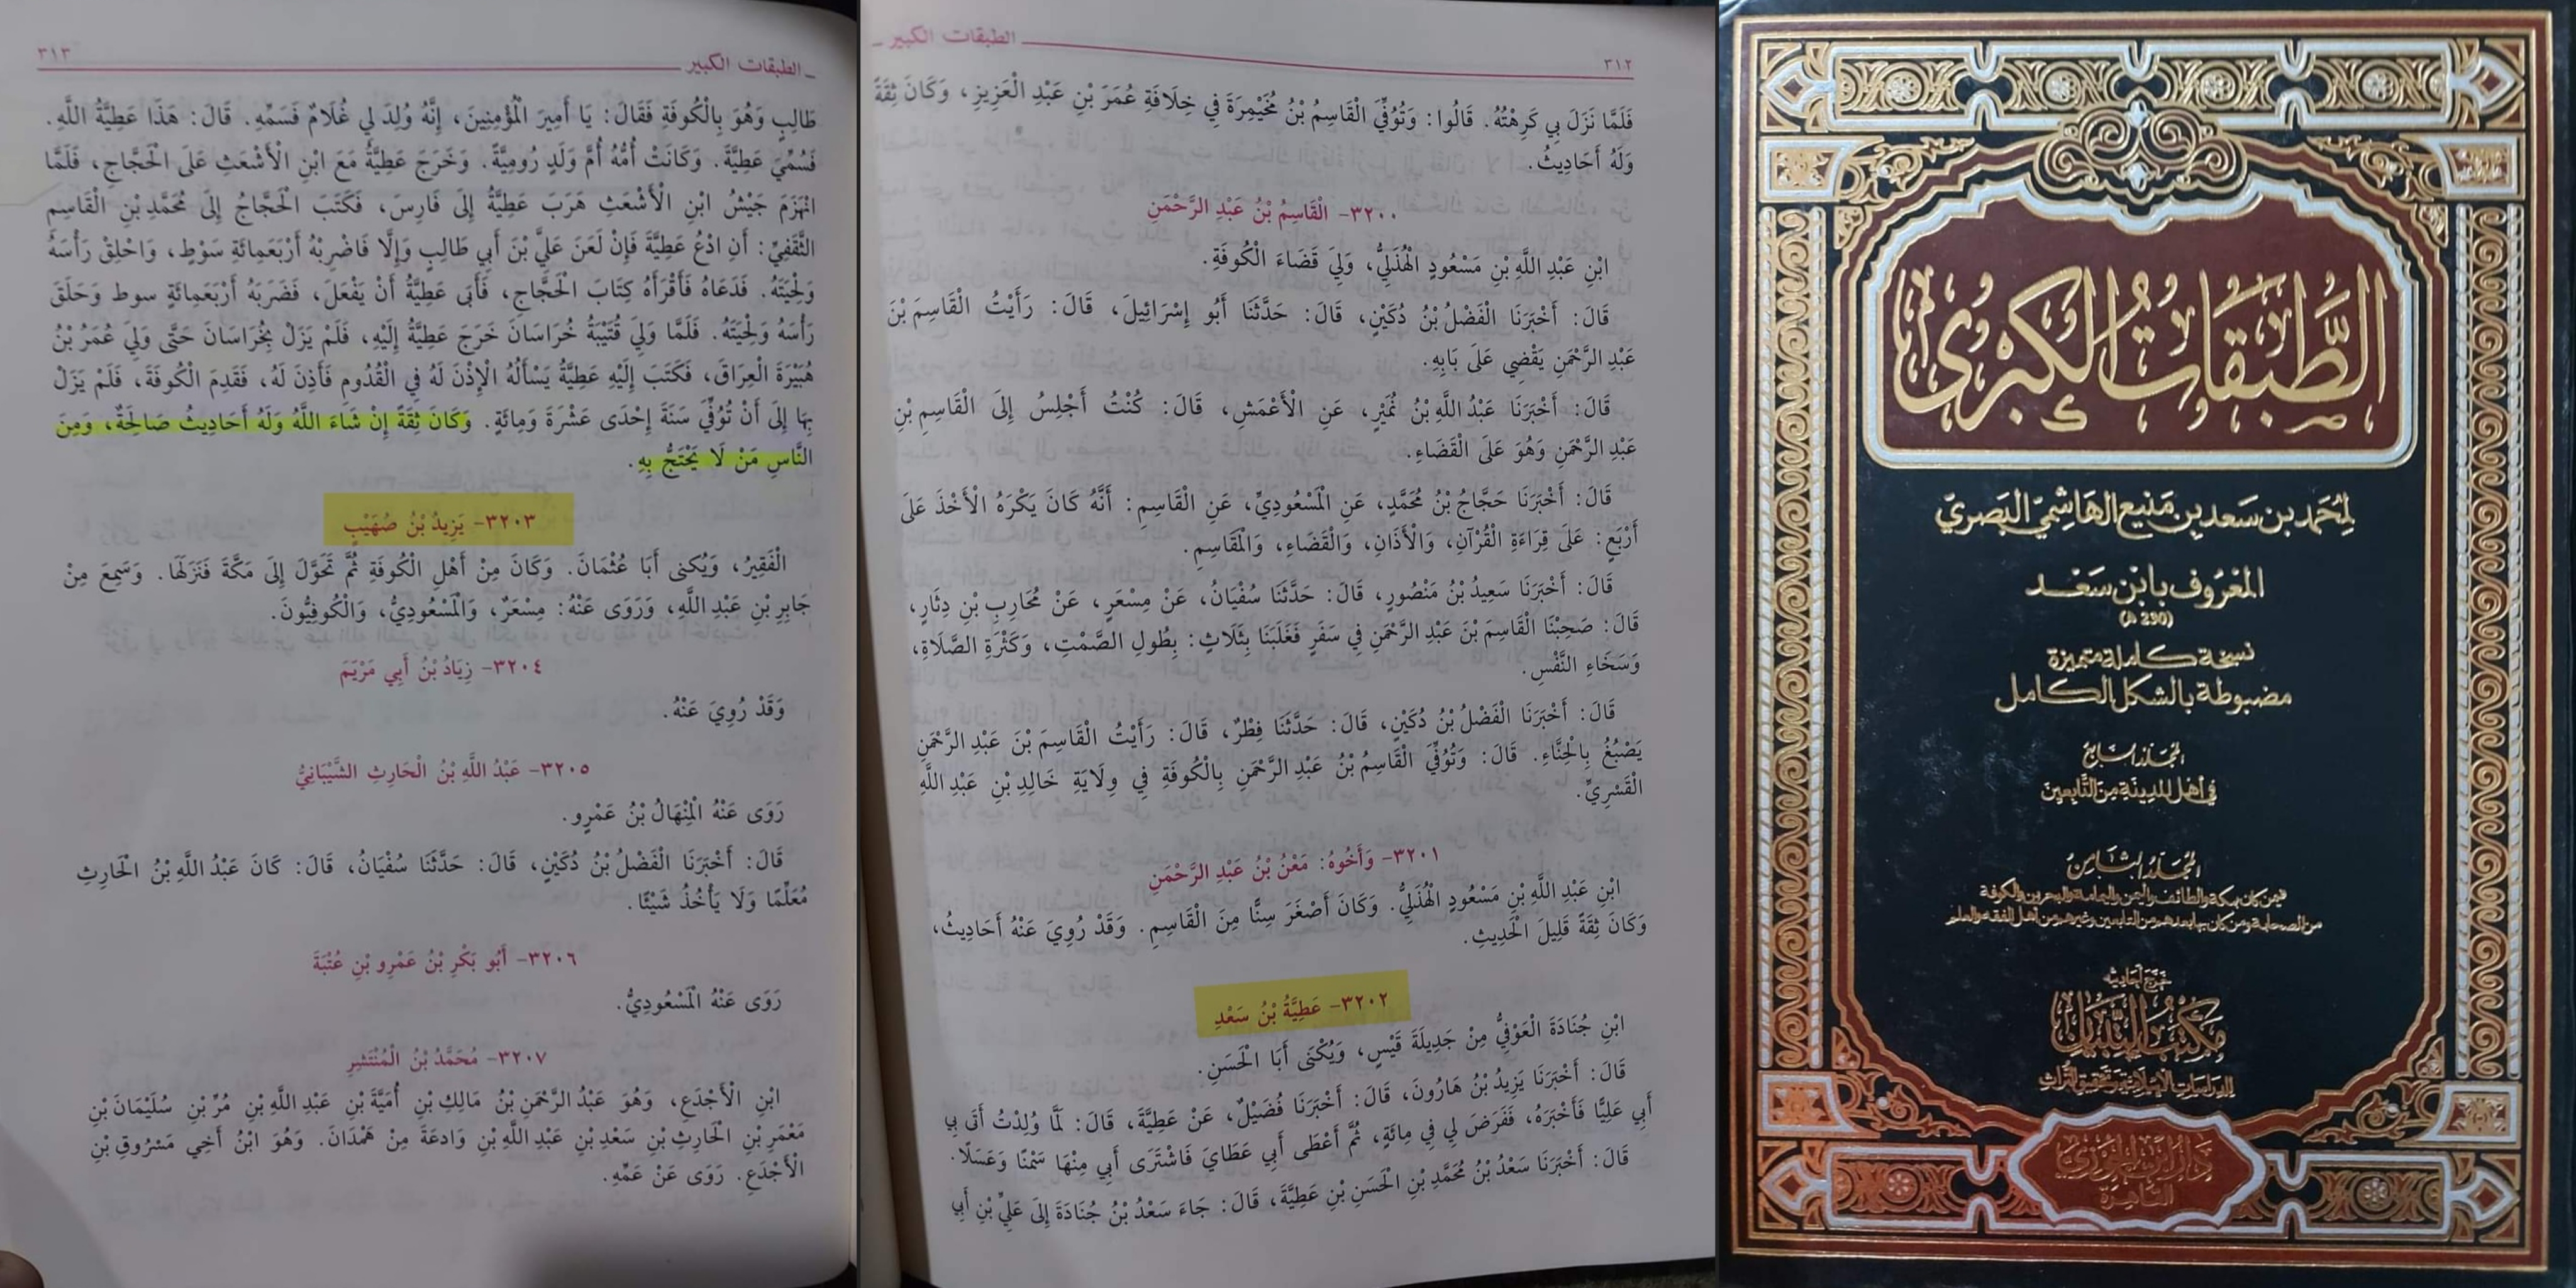 ٣١٣
الطبقات الكبير
طَالِبٍ وَهُوَ بِالْكُوفَةِ فَقَالَ: يَا أَمِيرَ الْمُؤْمِنِينَ، إِنَّهُ وُلِدَ لِي غُلَامٌ فَسَمِّهِ. قَالَ: هَذَا عَطِيَّةُ اللَّهِ.
فَسُمِّيَ عَطِيَّةَ. وَكَانَتْ أُمُّهُ أُمَّ وَلَدٍ رُومِيَّةً. وَخَرَجَ عَطِيَّةُ مَعَ ابْنِ الْأَشْعَثِ عَلَى الْحَجَّاجِ، فَلَمَّا
انْهَزَمَ جَيْشُ ابْنِ الْأَشْعَثِ هَرَبَ عَطِيَّةُ إِلَى فَارِسَ، فَكَتَبَ الْحَجَّاجُ إِلَى مُحَمَّدِ بْنِ الْقَاسِمِ
الثَّقَفِيِّ: أَنِ ادْعُ عَطِيَّةَ فَإِنْ لَعَنَ عَلِيَّ بْنَ أَبِي طَالِبٍ وَإِلَّا فَاضْرِبْهُ أَرْبَعَمِائَةِ سَوْطٍ، وَاحْلِقْ رَأْسَهُ
وَلِحْيَتَهُ. فَدَعَاهُ فَأَقْرَأَهُ كِتَابَ الْحَجَّاجِ، فَأَبَى عَطِيَّةُ أَنْ يَفْعَلَ، فَضَرَبَهُ أَرْبَعَمِائَةِ سوط وَحَلَقَ
رَأْسَهُ وَلِحْيَتَهُ. فَلَمَّا وَلِيَ قُتَيْبَةُ خُرَاسَانَ خَرَجَ عَطِيَّةُ إِلَيْهِ، فَلَمْ يَزَلْ بِخُرَاسَانَ حَتَّى وَلِيَ عُمَرُ بْنُ
هُبَيْرَةَ الْعِرَاقَ، فَكَتَبَ إِلَيْهِ عَطِيَّةُ يَسْأَلُهُ الْإِذْنَ لَهُ فِي الْقُدُومِ فَأَذِنَ لَهُ، فَقَدِمَ الْكُوفَةَ، فَلَمْ يَزَلْ
بِهَا إِلَى أَنْ تُوُفِّيَ سَنَةَ إِحْدَى عَشْرَةَ وَمِائَةٍ. وَكَانَ ثِقَةً إِنْ شَاءَ اللَّهُ وَلَهُ أَحَادِيثُ صَالِحَةٌ، وَمِنَ
النَّاسِ مَنْ لَا يَحْتَجُّ بِهِ.
٣٢٠٣- يَزِيدُ بْنُ صُهَيْبٍ
الْفَقِيرُ، وَيُكنى أَبَا عُثْمَانَ. وَكَانَ مِنْ أَهْلِ الْكُوفَةِ ثُمَّ تَحَوَّلَ إِلَى مَكَّةَ فَنَزَلَهَا. وَسَمِعَ مِنْ
جَابِرِ بْنِ عَبْدِ اللَّهِ، وَرَوَى عَنْهُ: مِسْعَرٌ، وَالْمَسْعُودِيُّ، وَالْكُوفِيُّونَ.
٣٢٠٤- زِيَادُ بْنُ أَبِي مَرْيَمَ
وَقَدْ رُوِيَ عَنْهُ.
٣٢٠٥- عَبْدُ اللَّهِ بْنُ الْحَارِثِ الشَّيْبَانِيُّ
رَوَى عَنْهُ الْمِنْهَالُ بْنُ عَمْرٍو.
قَالَ: أَخْبَرَنَا الْفَضْلُ بْنُ دُكَيْنٍ، قَالَ: حَدَّثَنَا سُفْيَانُ، قَالَ: كَانَ عَبْدُ اللَّهِ بْنُ الْحَارِثِ
مُعَلِّمًا وَلَا يَأْخُذُ شَيْئًا.
٣٢٠٦- أَبُو بَكْرِ بْنُ عَمْرِو بْنِ عُتْبَةَ
رَوَى عَنْهُ الْمَسْعُودِيُّ.
٣٢٠٧- مُحَمَّدُ بْنُ الْمُنْتَشِرِ
ابْنِ الْأَجْدَعِ، وَهُوَ عَبْدُ الرَّحْمَنِ بْنُ مَالِكِ بْنِ أُمَيَّةَ بْنِ عَبْدِ اللَّهِ بْنِ مُرِّ بْنِ سُلَيْمَانَ بْنِ
مَعْمَرِ بْنِ الْحَارِثِ بْنِ سَعْدِ بْنِ عَبْدِ اللَّهِ بْنِ وَادِعَةَ مِنْ هَمْدَانَ. وَهُوَ ابْنُ أَخِي مَسْرُوقِ بْنِ
الْأَجْدَعِ. رَوَى عَنْ عَمِّهِ.
٣١٢
الطبقات الكبير
فَلَمَّا نَزَلَ بِي كَرِهْتُهُ. قَالُوا: وَتُوُفِّيَ الْقَاسِمُ بْنُ مُخَيْمِرَةَ فِي خِلَافَةِ عُمَرَ بْنِ عَبْدِ الْعَزِيزِ، وَكَانَ ثِقَةً
وَلَهُ أَحَادِيثُ.
٣٢٠٠- الْقَاسِمُ بْنُ عَبْدِ الرَّحْمَنِ
ابْنِ عَبْدِ اللَّهِ بْنِ مَسْعُودٍ الْهُذَلِيُّ، وَلِيَ قَضَاءَ الْكُوفَةِ.
قَالَ: أَخْبَرَنَا الْفَضْلُ بْنُ دُكَيْنٍ، قَالَ: حَدَّثَنَا أَبُو إِسْرَائِيلَ، قَالَ: رَأَيْتُ الْقَاسِمَ بْنَ
عَبْدِ الرَّحْمَنِ يَقْضِي عَلَى بَابِهِ.
قَالَ: أَخْبَرَنَا عَبْدُ اللَّهِ بْنُ نُمَيْرٍ، عَنِ الْأَعْمَشِ، قَالَ: كُنْتُ أَجْلِسُ إِلَى الْقَاسِمِ بْنِ
عَبْدِ الرَّحْمَنِ وَهُوَ عَلَى الْقَضَاءِ.
قَالَ: أَخْبَرَنَا حَجَّاجُ بْنُ مُحَمَّدٍ، عَنِ الْمَسْعُودِيِّ، عَنِ الْقَاسِمِ: أَنَّهُ كَانَ يَكْرَهُ الْأَخْذَ عَلَى
أَرْبَعٍ: عَلَى قِرَاءَةِ الْقُرْآنِ، وَالْأَذَانِ، وَالْقَضَاءِ، وَالْمَقَاسِمِ.
قَالَ: أَخْبَرَنَا سَعِيدُ بْنُ مَنْصُورٍ، قَالَ: حَدَّثَنَا سُفْيَانُ، عَنْ مِسْعَرٍ، عَنْ مُحَارِبِ بْنِ دِثَارٍ،
قَالَ: صَحِبْنَا الْقَاسِمَ بْنَ عَبْدِ الرَّحْمَنِ فِي سَفَرٍ فَغَلَبَنَا بِثَلَاثٍ: بِطُولِ الصَّمْتِ، وَكَثْرَةِ الصَّلَاةِ،
وَسَخَاءِ النَّفْسِ.
قَالَ: أَخْبَرَنَا الْفَضْلُ بْنُ دُكَيْنٍ، قَالَ: حَدَّثَنَا فِطْرٌ، قَالَ: رَأَيْتُ الْقَاسِمَ بْنَ عَبْدِ الرَّحْمَنِ
يَصْبُغُ بِالْحِنَّاءِ. قَالَ: وَتُوُفِّيَ الْقَاسِمُ بْنُ عَبْدِ الرَّحْمَنِ بِالْكُوفَةِ فِي وِلَايَةِ خَالِدِ بْنِ عَبْدِ اللَّهِ
الْقَسْرِيِّ.
٣٢٠١- وَأَخُوهُ: مَعْنُ بْنُ عَبْدِ الرَّحْمَنِ
ابْنِ عَبْدِ اللَّهِ بْنِ مَسْعُودٍ الْهُذَلِيُّ. وَكَانَ أَصْغَرَ سِنًّا مِنَ الْقَاسِمِ. وَقَدْ رُوِيَ عَنْهُ أَحَادِيثُ،
وَكَانَ ثِقَةً قَلِيلَ الْحَدِيثِ.
٣٢٠٢- عَطِيَّةُ بْنُ سَعْدِ
ابْنِ جُنَادَةَ الْعَوْفِيُّ مِنْ جَدِيلَةَ قَيْسٍ، وَيُكْنَى أَبَا الْحَسَنِ.
قَالَ: أَخْبَرَنَا يَزِيدُ بْنُ هَارُونَ، قَالَ: أَخْبَرَنَا فُضَيْلٌ، عَنْ عَطِيَّةَ، قَالَ: لَمَّا وُلِدْتُ أَتَى بِي
أَبِي عَلِيًّا فَأَخْبَرَهُ، فَفَرَضَ لِي فِي مِائَةٍ، ثُمَّ أَعْطَى أَبِي عَطَايَ فَاشْتَرَى أَبِي مِنْهَا سَمْنًا وَعَسَلًا.
قَالَ: أَخْبَرَنَا سَعْدُ بْنُ مُحَمَّدِ بْنِ الْحَسَنِ بْنِ عَطِيَّةَ، قَالَ: جَاءَ سَعْدُ بْنُ جُنَادَةَ إِلَى عَلِيِّ بْنِ أَبِي
الطَّبَقَاتُ الْكُبْرَى
لِمُحَمَّد بن سَعد بن مَنيع الهَاشِميّ البَصريّ
المَعرُوف بابن سَعْد
(230 هـ)
نسخة كاملة متميزة
مضبوطة بالشكل الكامل
المجلد السابع
في أهل المدينة من التَّابعين
المجلد الثامن
فيمن كان بمكة والطائف واليمن واليمامة والبحرين والكوفة
من الصحابة ومن كان بها بعدهم من التابعين وغيرهم من أهل الفقه والعلم
خرج أحاديثه
مكتب التبيان
للدراسات الإسلامية وتحقيق التراث
دار ابن الجوزي
القاهرة